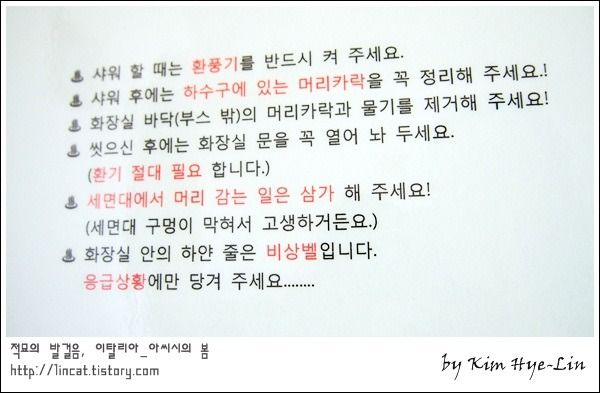 ♨ 샤워 할 때는 환풍기를 반드시 켜 주세요.
♨ 샤워 후에는 하수구에 있는 머리카락을 꼭 정리해 주세요.!
♨ 화장실 바닥(부스 밖)의 머리카락과 물기를 제거해 주세요!
♨ 씻으신 후에는 화장실 문을 꼭 열어 놔 두세요.
(환기 절대 필요 합니다.)
♨ 세면대에서 머리 감는 일은 삼가 해 주세요!
(세면대 구멍이 막혀서 고생하거든요.)
♨ 화장실 안의 하얀 줄은 비상벨입니다.
응급상황에만 당겨 주세요........
적묘의 발걸음, 이탈리아_아씨시의 봄
http://lincat.tistory.com
by Kim Hye-Lin